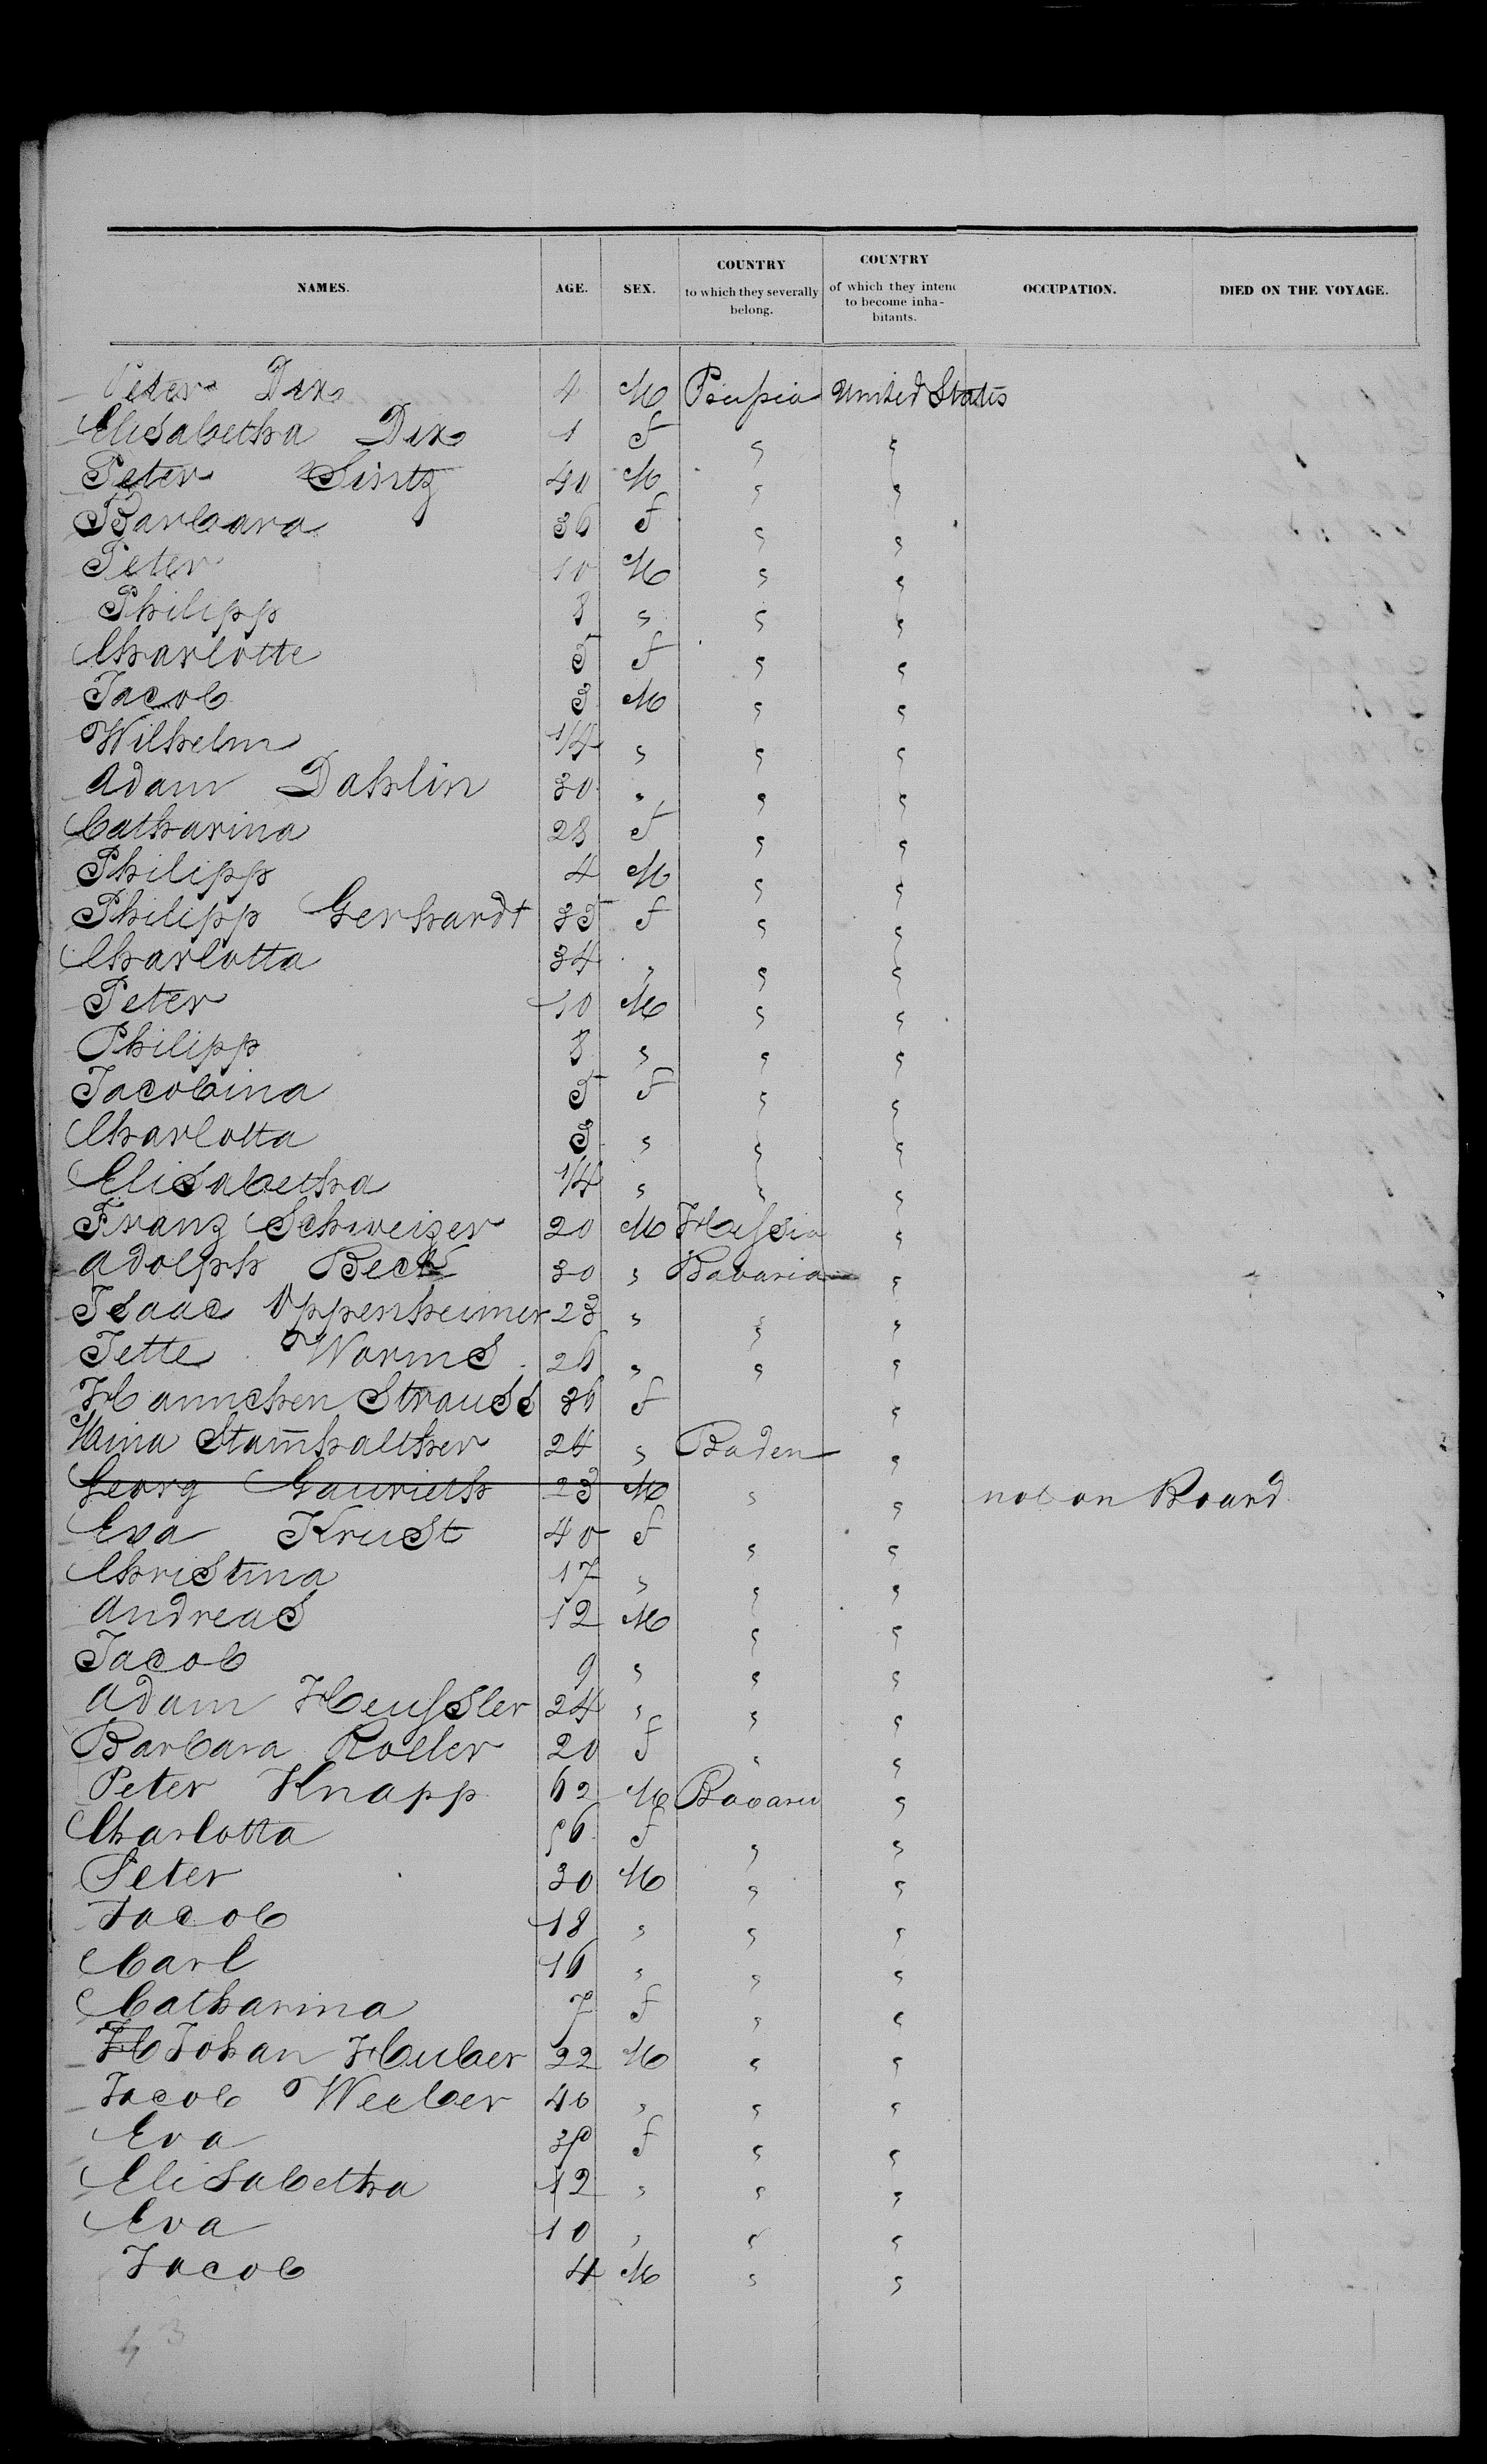 NAMES. AGE. SEX. COUNTRY to which they severally belong. COUNTRY of which they intend to become inha-bitants. OCCUPATION. DIED ON THE VOYAGE.
Peter Dix 4 M Prussia United States
Elisabetha Dix 1 f " "
Peter Sintz 40 M " "
Barbara 36 f " "
Peter 10 M " "
Philipp 8 " " "
Charlotte 5 f " "
Jacob 3 M " "
Wilhelm 1/4 " " "
Adam Dahlin 30 " " "
Catharina 28 f " "
Philipp 4 M " "
Philipp Gerhardt 35 f " "
Charlotta 34 " " "
Peter 10 M " "
Philipp 8 " " "
Jacobina 5 f " "
Charlotta 3 " " "
Elisabetha 1/4 " " "
Franz Schweizer 20 M Hessia "
Adolph Beck 30 " Bavaria "
Isaac Oppenheimer 23 " " "
Jette Worms 26 " " "
Hannchen Strauss 36 f "
Mina Stam̅halther 24 " Baden "
Georg Gaurieth 23 M " " not on Board
Eva Krust 40 f " "
Christina 17 " " "
Andreas 12 M " "
Jacob 9 " " "
Adam Heussler 24 " " "
Barbara Roller 20 f " "
Peter Knapp 62 M Bavaria "
Charlotta 56 f " "
Peter 30 M " "
Jacob 18 " " "
Carl 16 " " "
Catharina 7 f " "
H Johan Huber 22 M " "
Jacob Weeber 40 " " "
Eva f " "
Elisabetha 12 " " "
Eva 10 " " "
Jacob 4 M " "
43